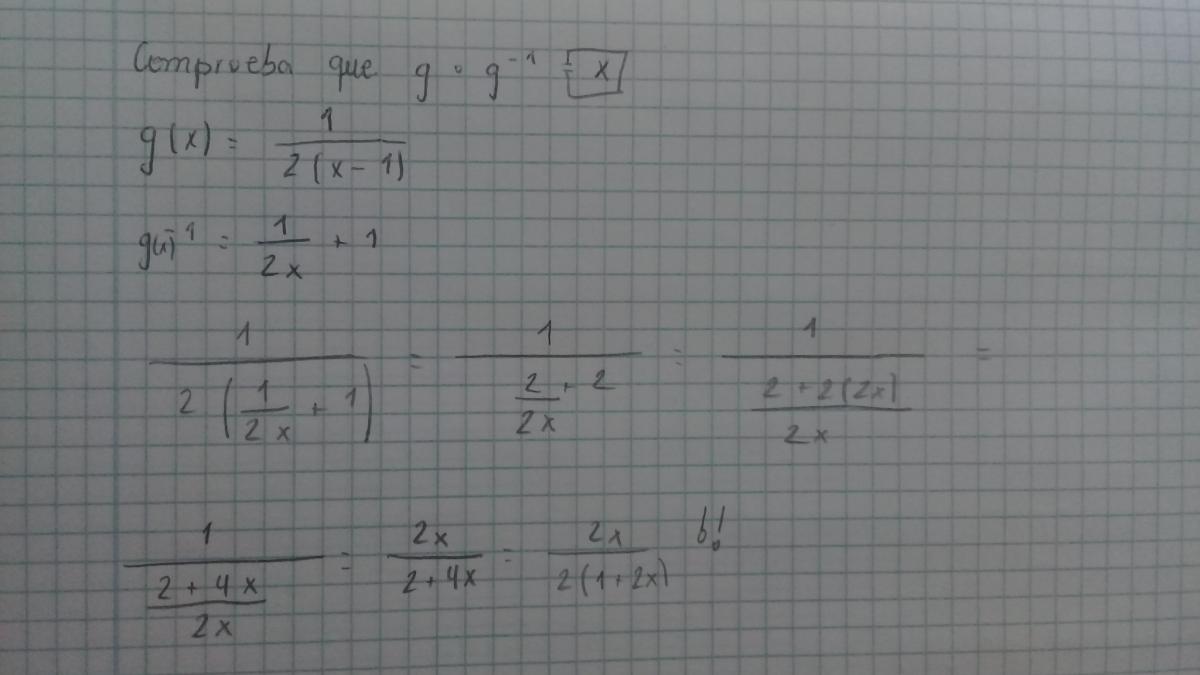 Comprueba que g ∘ g⁻¹ = x
g(x) = 1 / 2(x-1)
g(x)⁻¹ = 1/2x + 1
1 / 2(1/2x + 1) = 1 / (2/2x + 2) = 1 / ((2+2(2x))/2x) =
1 / ((2+4x)/2x) = 2x / 2+4x = 2x / 2(1+2x)